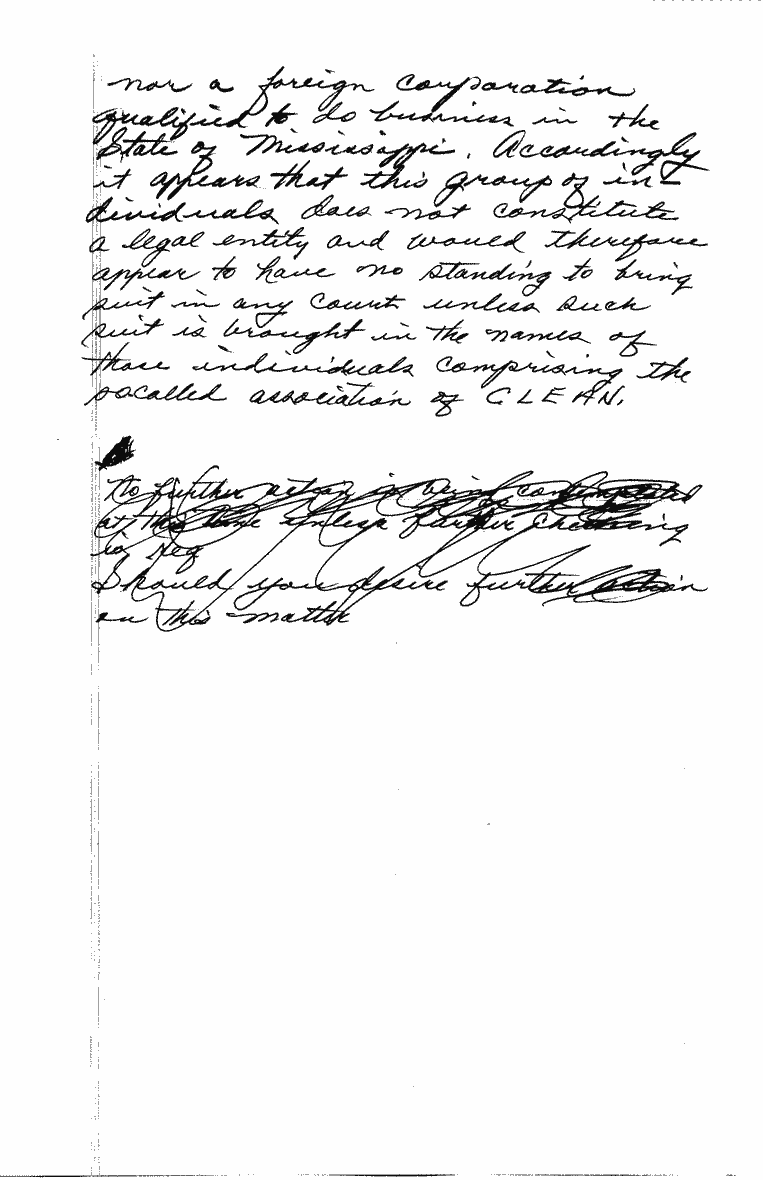 nor a foreign corporation
qualified to do business in the
State of Mississippi. Accordingly
it appears that this group of in-
dividuals does not constitute
a legal entity and would therefore
appear to have no standing to bring
suit in any Court unless such
suit is brought in the names of
those individuals comprising the
socalled association of CLEAN.
No further action is being contemplated
at this time unless further checking
is req
Should you desire further action
on this matter